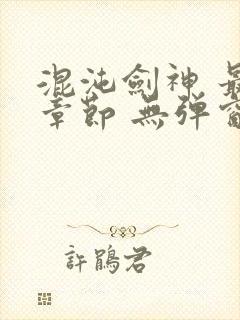 混沌劍神 最
章節 無彈窗
許鵑君